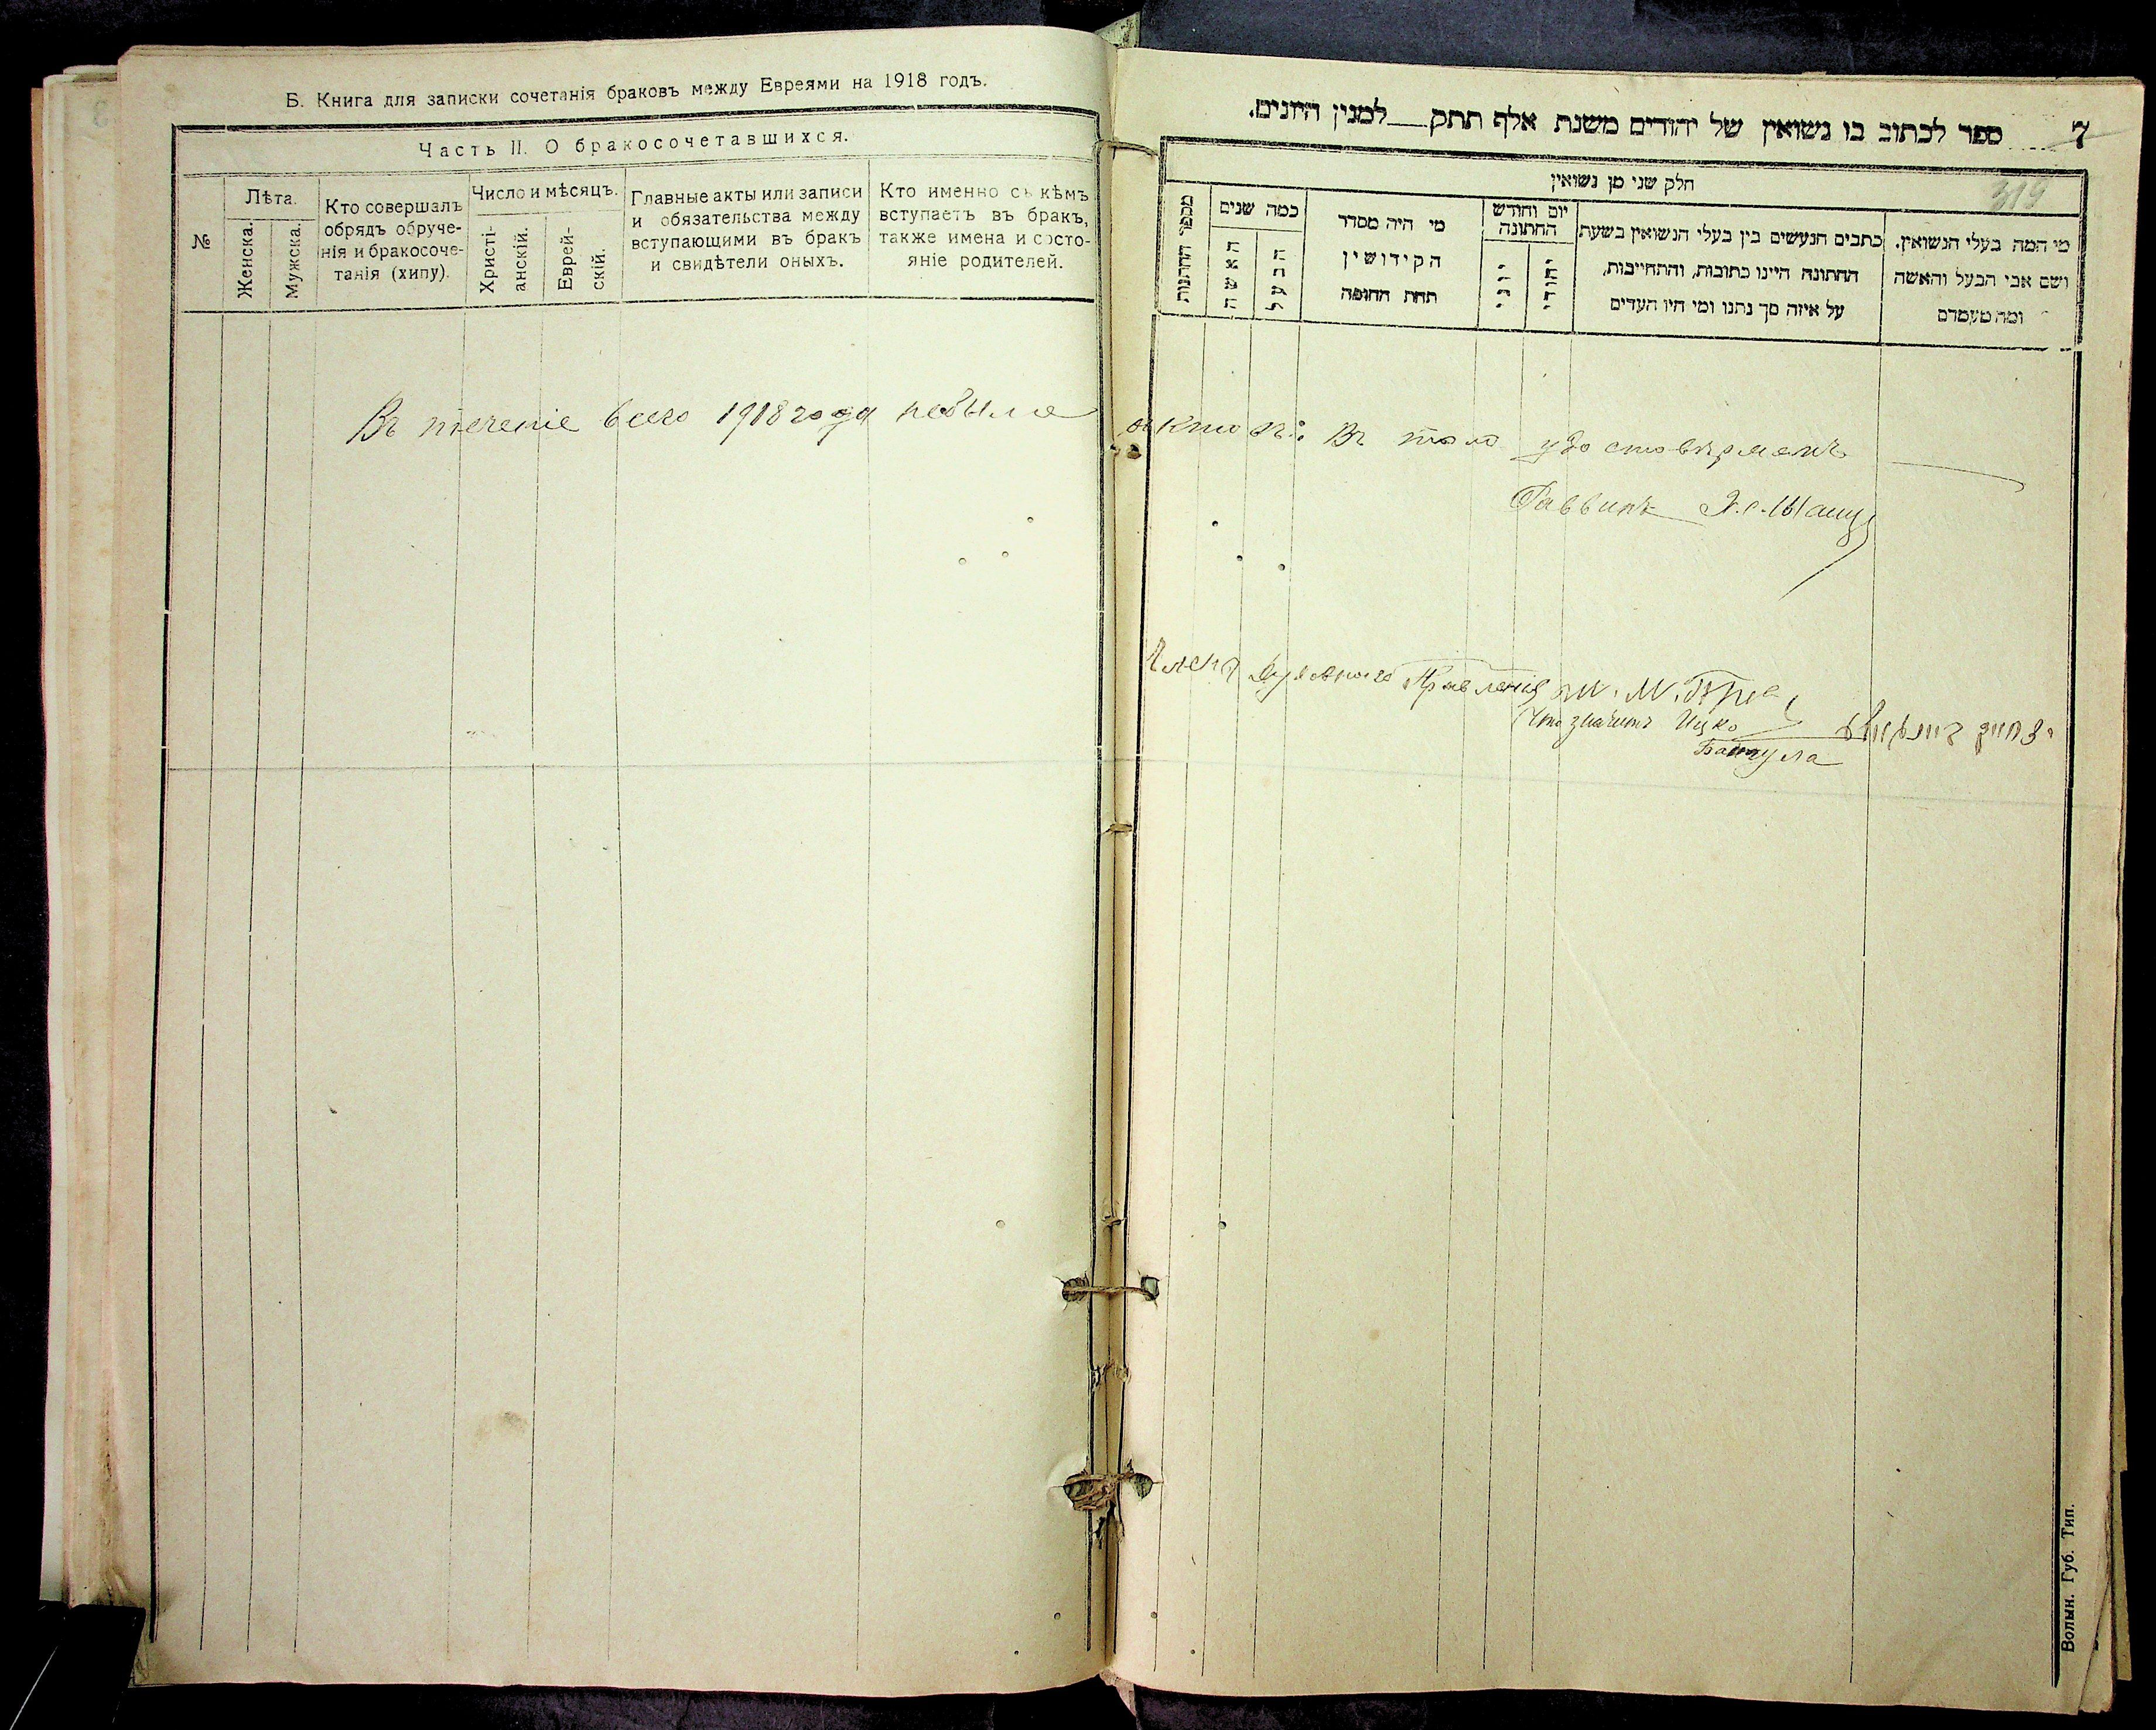 Б. Книга для записки сочетанія браковъ между Евреями на 1918 годъ.
Часть II. О бракосочетавшихся.
№
Лѣта.
Женска.
Мужска.
Кто совершалъ
обрядъ обруче-
нія и бракосоче-
танія (хипу).
Число и мѣсяцъ.
Христі-
анскій.
Еврей-
скій.
Главные акты или записи
и обязательства между
вступающими въ бракъ
и свидѣтели оныхъ.
Кто именно съ кѣмъ
вступаетъ въ бракъ,
также имена и состо-
яніе родителей.
7
ספר לכתוב בו נשואין של יהודים משנת אלף תתק__למנין היונים.
319
חלק שני מן נשואין
מי המה בעלי הנשואין.
ושם אבי הבעל והאשה
ומה מעמדם
כתבים הנעשים בין בעלי הנשואין בשעת
החתונה היינו כתובות, והתחייבות,
על איזה סך נתנו ומי היו העדים
יום וחודש
החתונה
יהודי
יוני
מי היה מסדר
הקידושין
תחת החופה
כמה שנים
הבעל
האשה
מספר החתונות
Въ теченіе всего 1918 года небыло актовъ: Въ томъ удостовѣряемъ
Раввинъ
Членъ Духовнаго Правленія
Что значитъ Ицко
Волын. Губ. Тип.